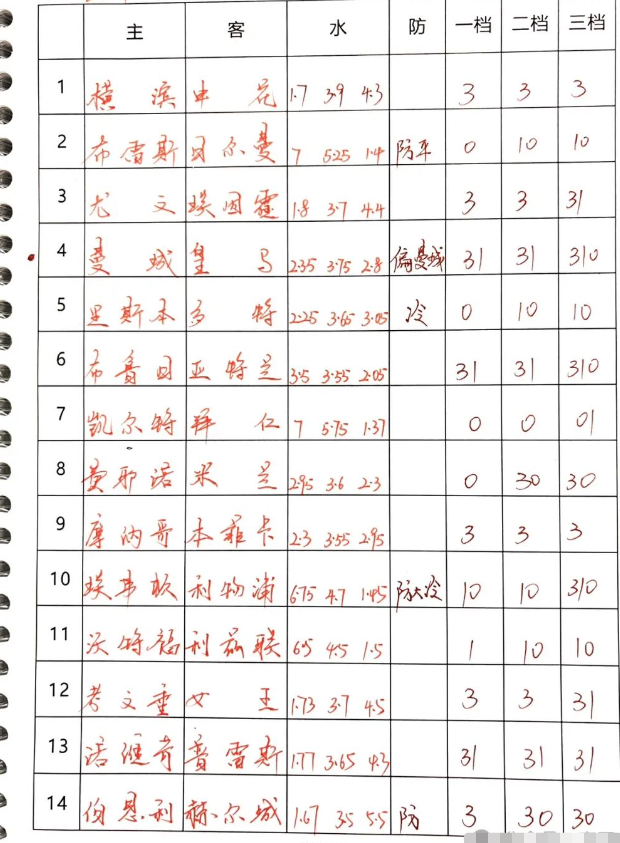 主 客 水 防 一档 二档 三档
1 横滨 申花 1.7 3.9 4.3 3 3 3
2 布雷斯 贝尔曼 7 5.25 1.4 防平 0 10 10
3 尤文 埃因霍 1.8 3.7 4.4 3 3 31
4 曼城 皇马 2.35 3.75 2.8 偏曼城 31 31 310
5 里斯本 多特 2.25 3.65 3.05 冷 0 10 10
6 布鲁日 亚特兰 3.5 3.55 2.05 31 31 310
7 凯尔特 拜仁 7 5.75 1.37 0 0 01
8 费耶诺 米兰 2.95 3.6 2.3 0 30 30
9 摩纳哥 本菲卡 2.3 3.55 2.95 3 3 3
10 埃弗顿 利物浦 6.75 4.7 1.45 防大冷 10 10 310
11 沃特福 利兹联 6.5 4.5 1.5 1 10 10
12 考文垂 女王 1.73 3.7 4.5 3 3 31
13 诺维奇 普雷斯 1.77 3.65 4.3 31 31 31
14 伯恩利 赫尔城 1.67 3.5 5.5 防 3 30 30